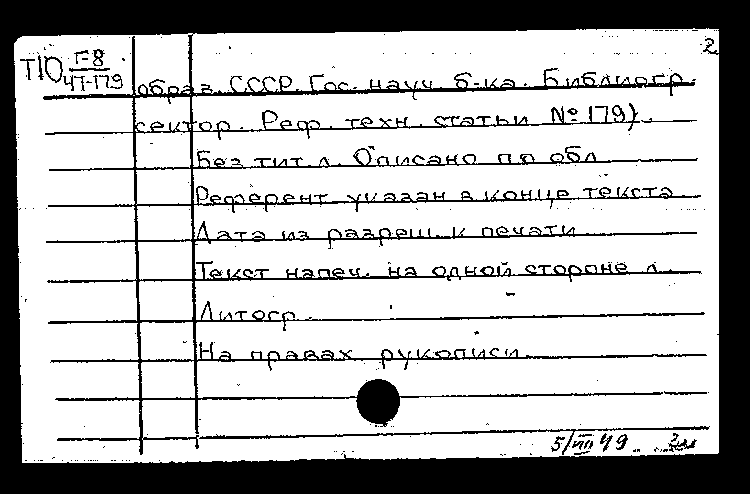 2
Т10 Г-8
47-179
образ. СССР. Гос. науч. б-ка. Библиогр.
сектор. Реф. техн. статьи № 179).
Без тит. л. Описано по обл.
Референт указан в конце текста
Дата из разреш. к печати
Текст напеч. на одной стороне л.
Литогр.
На правах рукописи
5/VIII 49